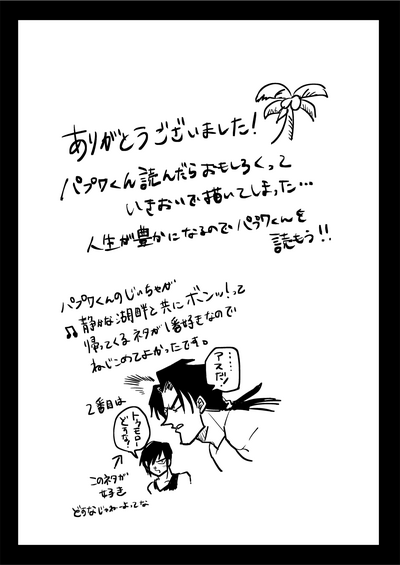 ありがとうございました!
パプワくん読んだらおもしろくって
いきおいで描いてしまった…
人生が豊かになるのでパプワくんを
読もう!!
パプワくんのじいちゃが
♫静かな湖畔と共にボンッ!って
帰ってくるネタが1番好きなので
ねじこめてよかったです。
……
アスだ!
2番目は
トゥモロー
どうな?
このネタが
好き
どうなじゃねーよってな